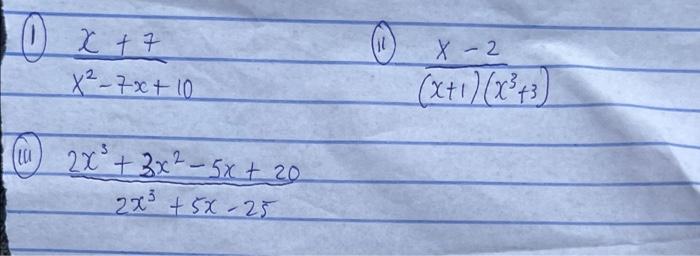 (i) x + 7 / x² - 7x + 10
(ii) x - 2 / (x+1)(x³+3)
(iii) 2x³ + 3x² - 5x + 20 / 2x³ + 5x - 25